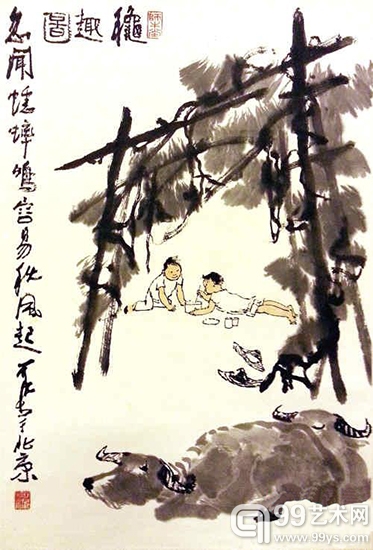 龝趣圖
忽闻蟋蟀鸣容易秋风起 可染于北京
99艺术网
www.99ys.com